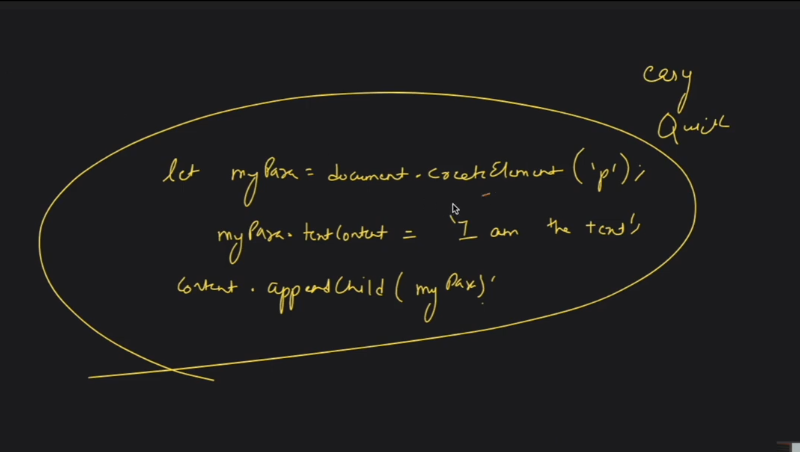 cesy
Quick
let myPara = document.createElement('p');
myPara.textContent = 'I am the text';
Content.appendChild(myPara);